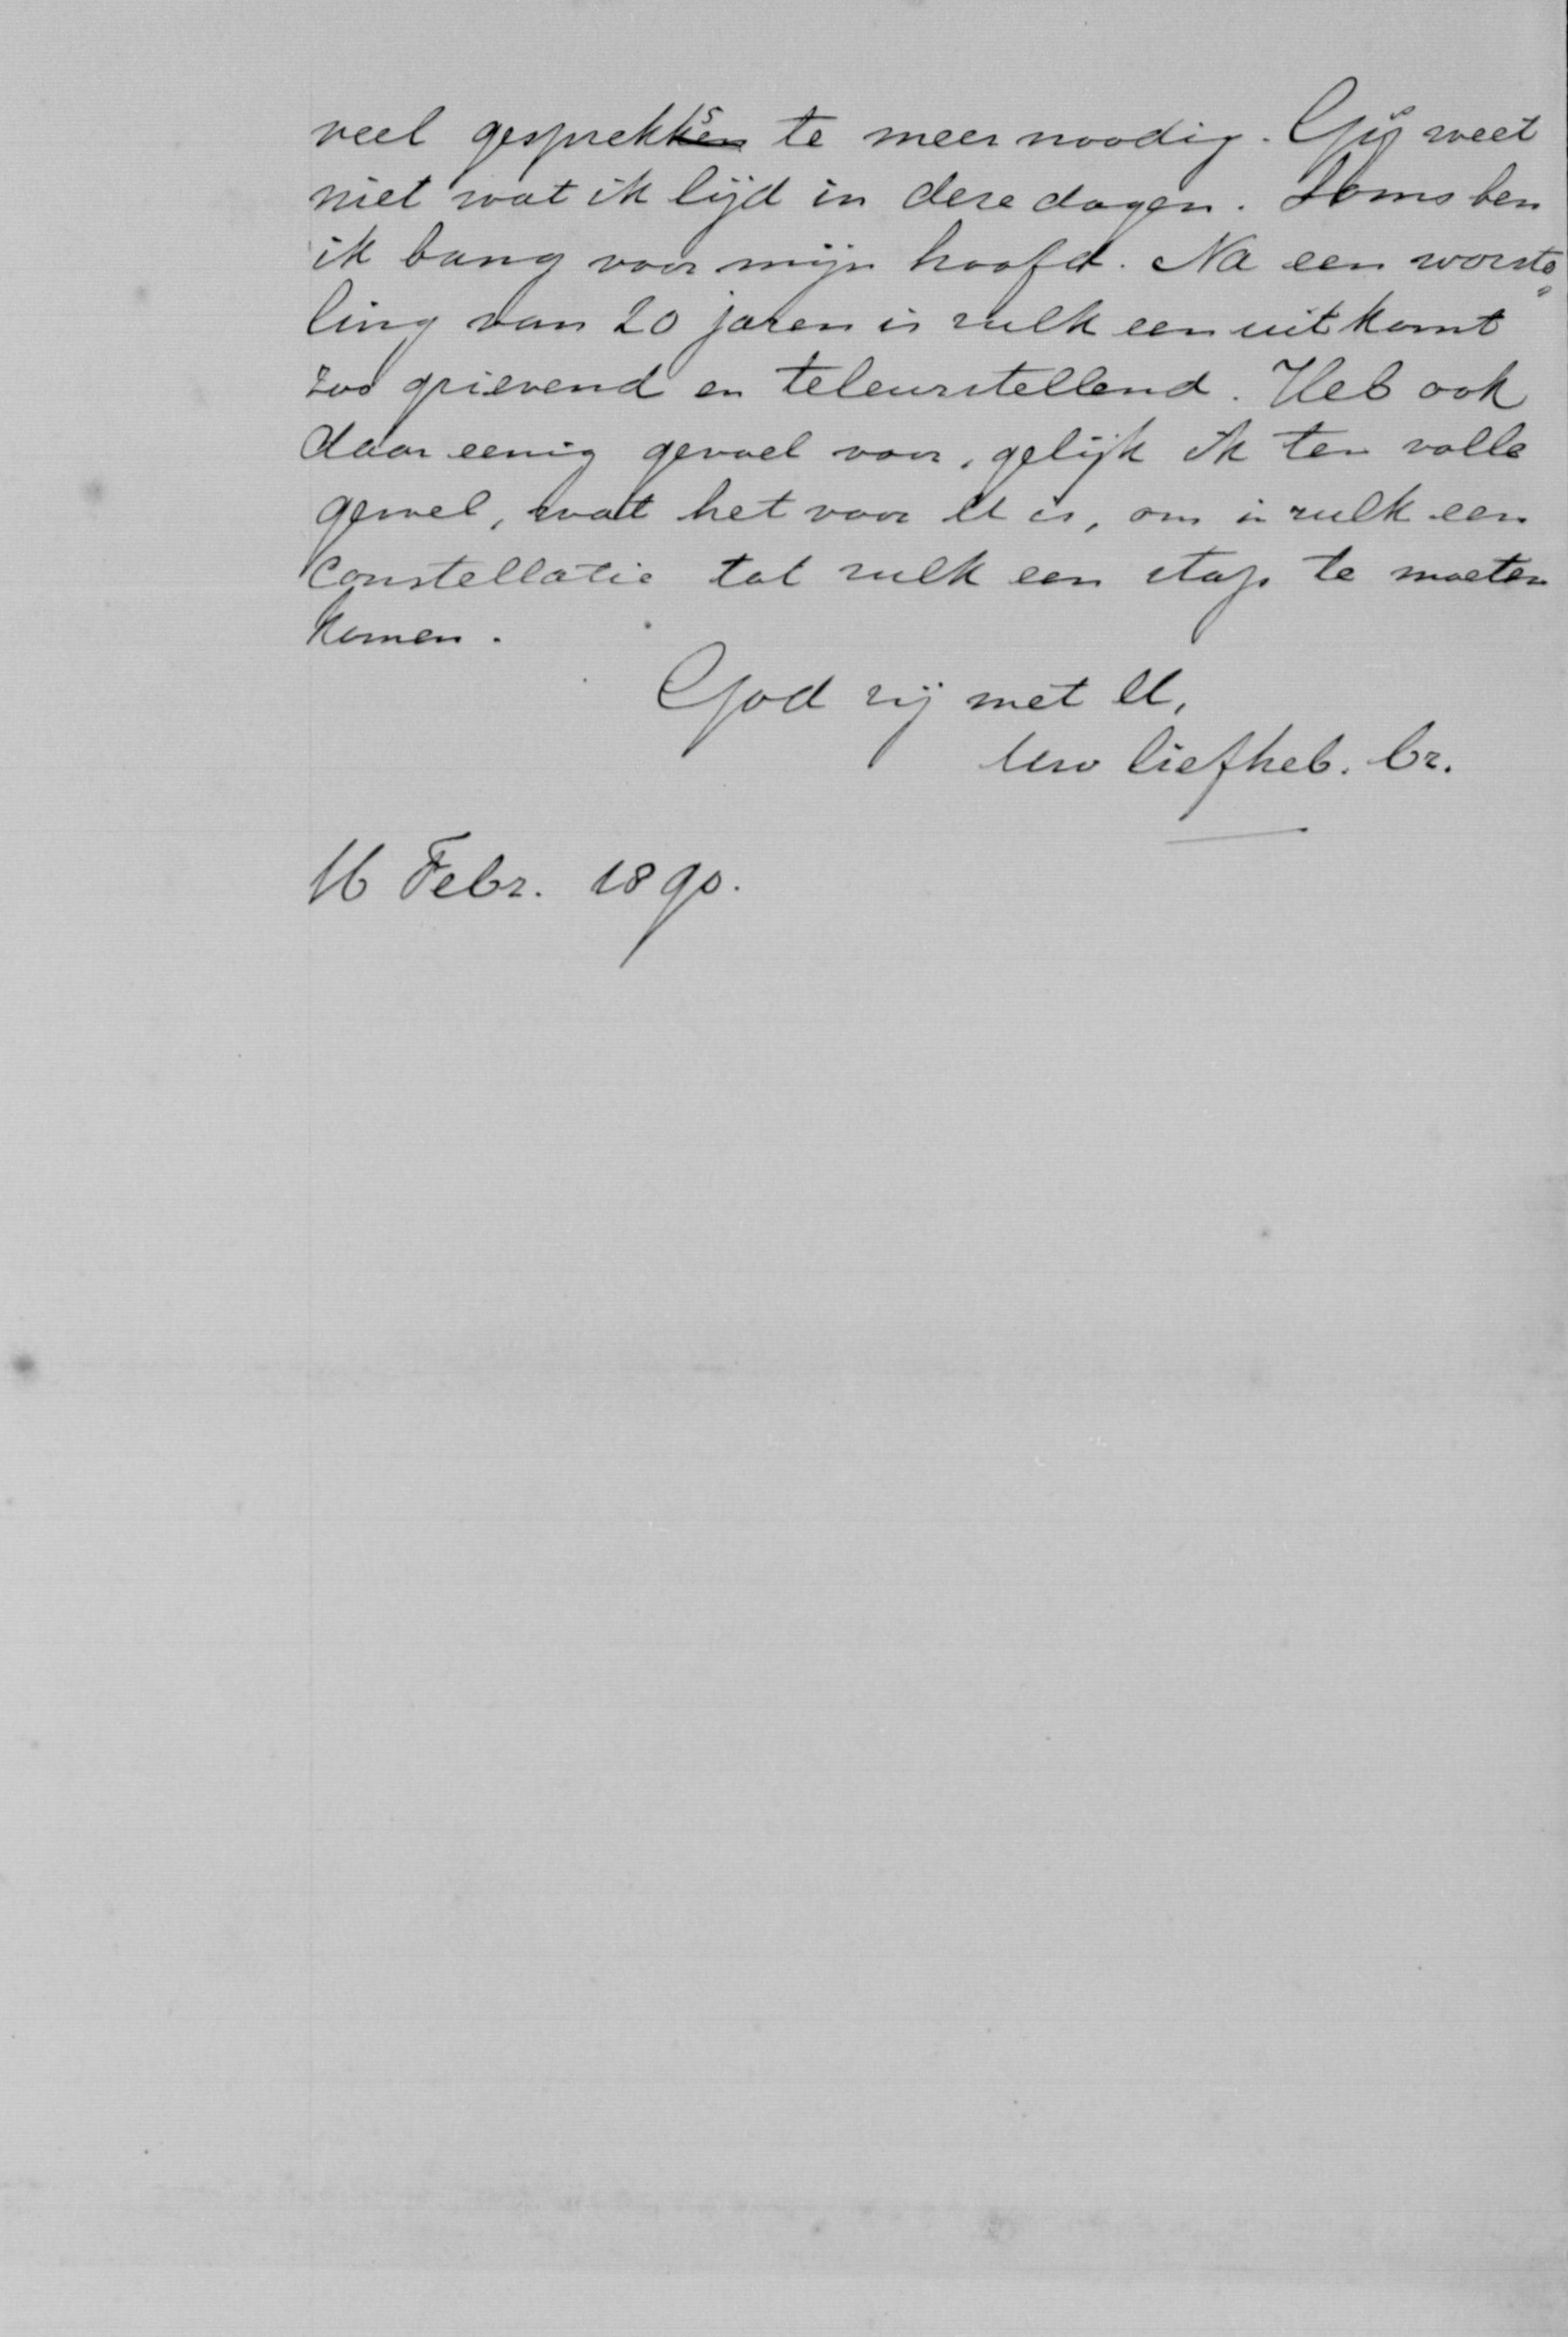 veel gespreks te meer noodig. Gij weet
niet wat ik lijd in deze dagen. Soms ben
ik bang voor mijn hoofd. Na een worste
ling van 20 jaren is zulk een uitkomst
zoo grievend en teleurstellend. Heb ook
daar eenig gevoel voor, gelijk ik ten volle
gevoel, wat het voor U is, om in zulk een
constellatie tot zulk een stap te moeten
komen.
God zij met U,
Uw liefheb. br.
16 Febr. 1890.